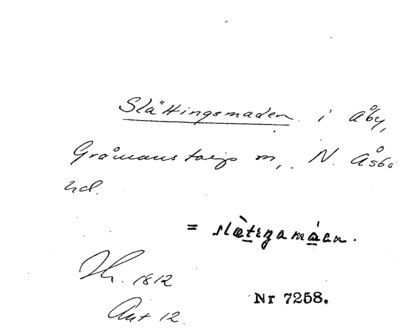 Slättingsmaden i Åby,
Gråmanstorps m, N. Åsbo
hd.
= slætıŋamáen.
1812
Ant 12.
Nr 7258.